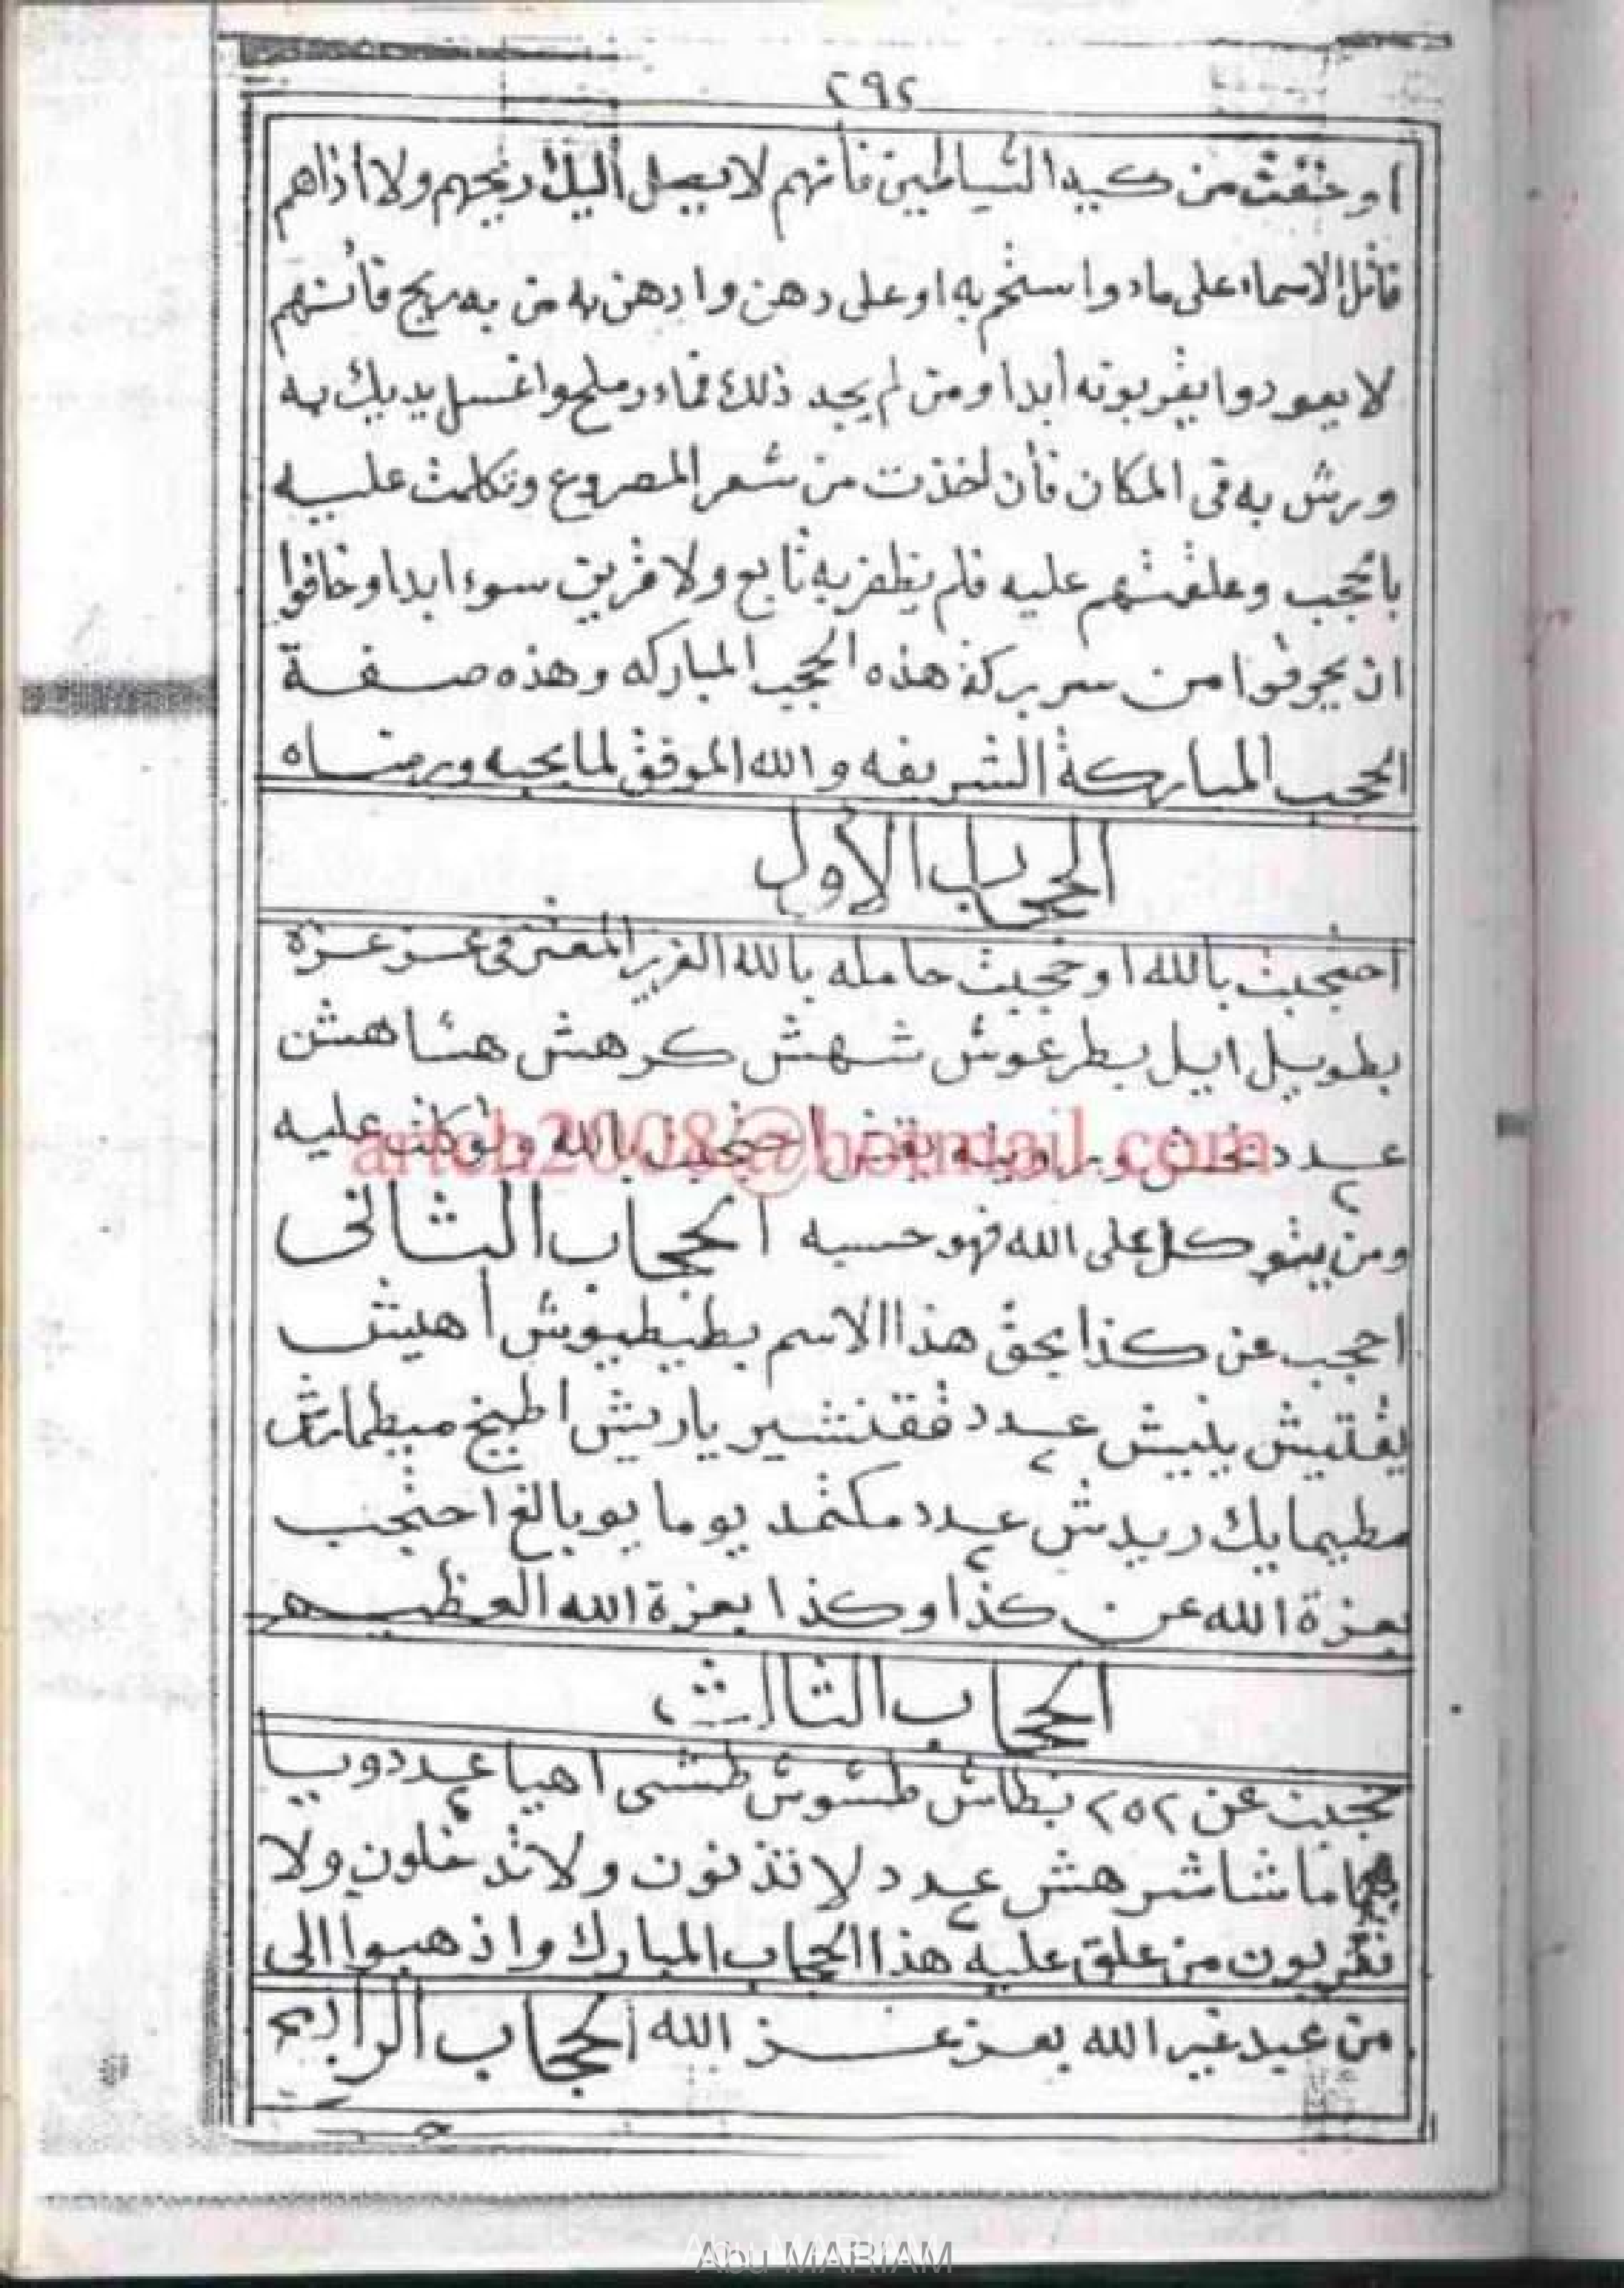 ٢٩٢
او خفت من كيد الشياطين فأنهم لا يصل أليك ريحهم ولا اذاهم
فأتل الاسماء على ماء واستحم به او على دهن وادهن به من به ريح فأنهم
لا يعودوا يقربونه أبدا ومن لم يجد ذلك فماء وملح واغسل يديك به
ورش به فى المكان فأن أخذت من شعر المصروع وتكلمت عليه
بالحجب وعلقتهم عليه فلم يظفر به تابع ولا قرين سوء ابدا وخافوا
ان يحرقوا من سر بركة هذه الحجب المباركه وهذه صفة
الحجب المباركة الشريفه والله الموفق لما يحبه ويرضاه
الحجاب الأول
احتجبت بالله او حجبت حامله بالله العزيز المعتز فى عز عزه
بطويل ايل بطرغوش شهش كرهش هشاهش
عدد احتجبت بالله وتوكلت عليه
٢
ومن يتوكل على الله فهو حسبه الحجاب الثانى
احجب عن كذا بحق هذا الاسم بطيطيوش أهيش
يفلتيش ينيش عدد ٢ فقنشير ياريش اطيخ ميطمارش
مطيمايك ريدش عدد ٢ مكنمد يوما يوبالغ احتجب
بعزة الله عن كذا وكذا بعزة الله العظيم
الحجاب الثالث
حجبت عن ٢٥٢ بطاش طشوش طشى اهيا عدد ٢ ويا
شاشرهش عدد ٢ لا تذنون ولا تدخلون ولا
تقربون من علق عليه هذا الحجاب المبارك واذهبوا الى
من عبد غير الله بعز عز الله الحجاب الرابع
artcb2008@hotmail.com
Abu MARIAM